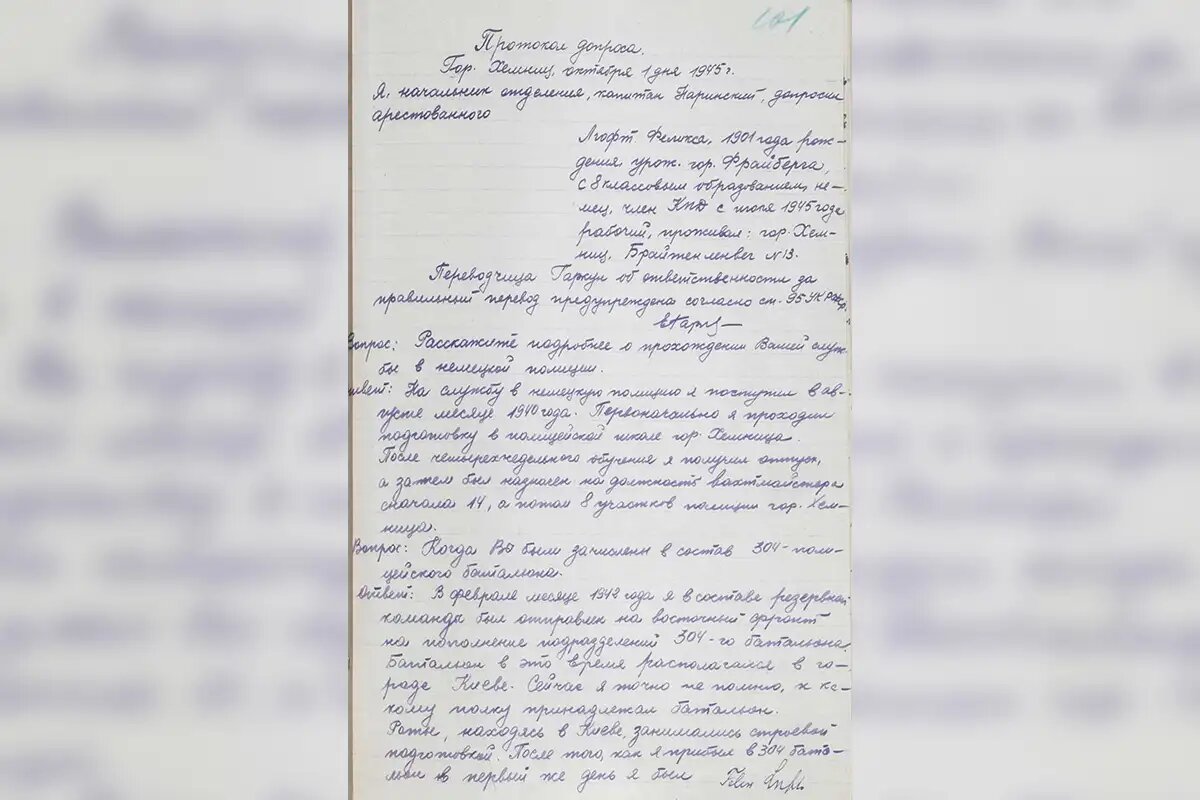 101
Протокол допроса.
Гор. Хемниц, октября 1 дня 1945 г.
Я, начальник отделения, капитан Наринский, допросил
арестованного
Феликса, 1901 года рож-
дения, урож. гор. Фрайберга,
с 8 классовым образованием, не-
мец, член КПД с июля 1945 года
рабочий, проживал: гор. Хем-
ниц, Брайтенленвег N 13.
Переводчица Гаркул об ответственности за
правильный перевод предупреждена согласно ст. 95 УК РСФСР.
Вопрос: Расскажите подробнее о прохождении Вашей служ-
бы в немецкой полиции.
Ответ: На службу в немецкую полицию я поступил в ав-
густе месяце 1940 года. Первоначально я проходил
подготовку в полицейской школе гор. Хемница.
После четырехнедельного обучения я получил отпуск,
а затем был назначен на должность вахтмайстера
сначала 14, а потом 8 участков полиции гор. Хем-
ница.
Вопрос: Когда Вы были зачислены в состав 304-поли-
цейского батальона.
Ответ: В феврале месяце 1942 года я в составе резервной
команды был отправлен на восточный фронт
на пополнение подразделений 304-го батальона.
Батальон в это время располагался в го-
роде Киеве. Сейчас я точно не помню, к ка-
кому полку принадлежал батальон.
Роты, находясь в Киеве, занимались строевой
подготовкой. После того, как я прибыл в 304 бата-
льон в первый же день я был